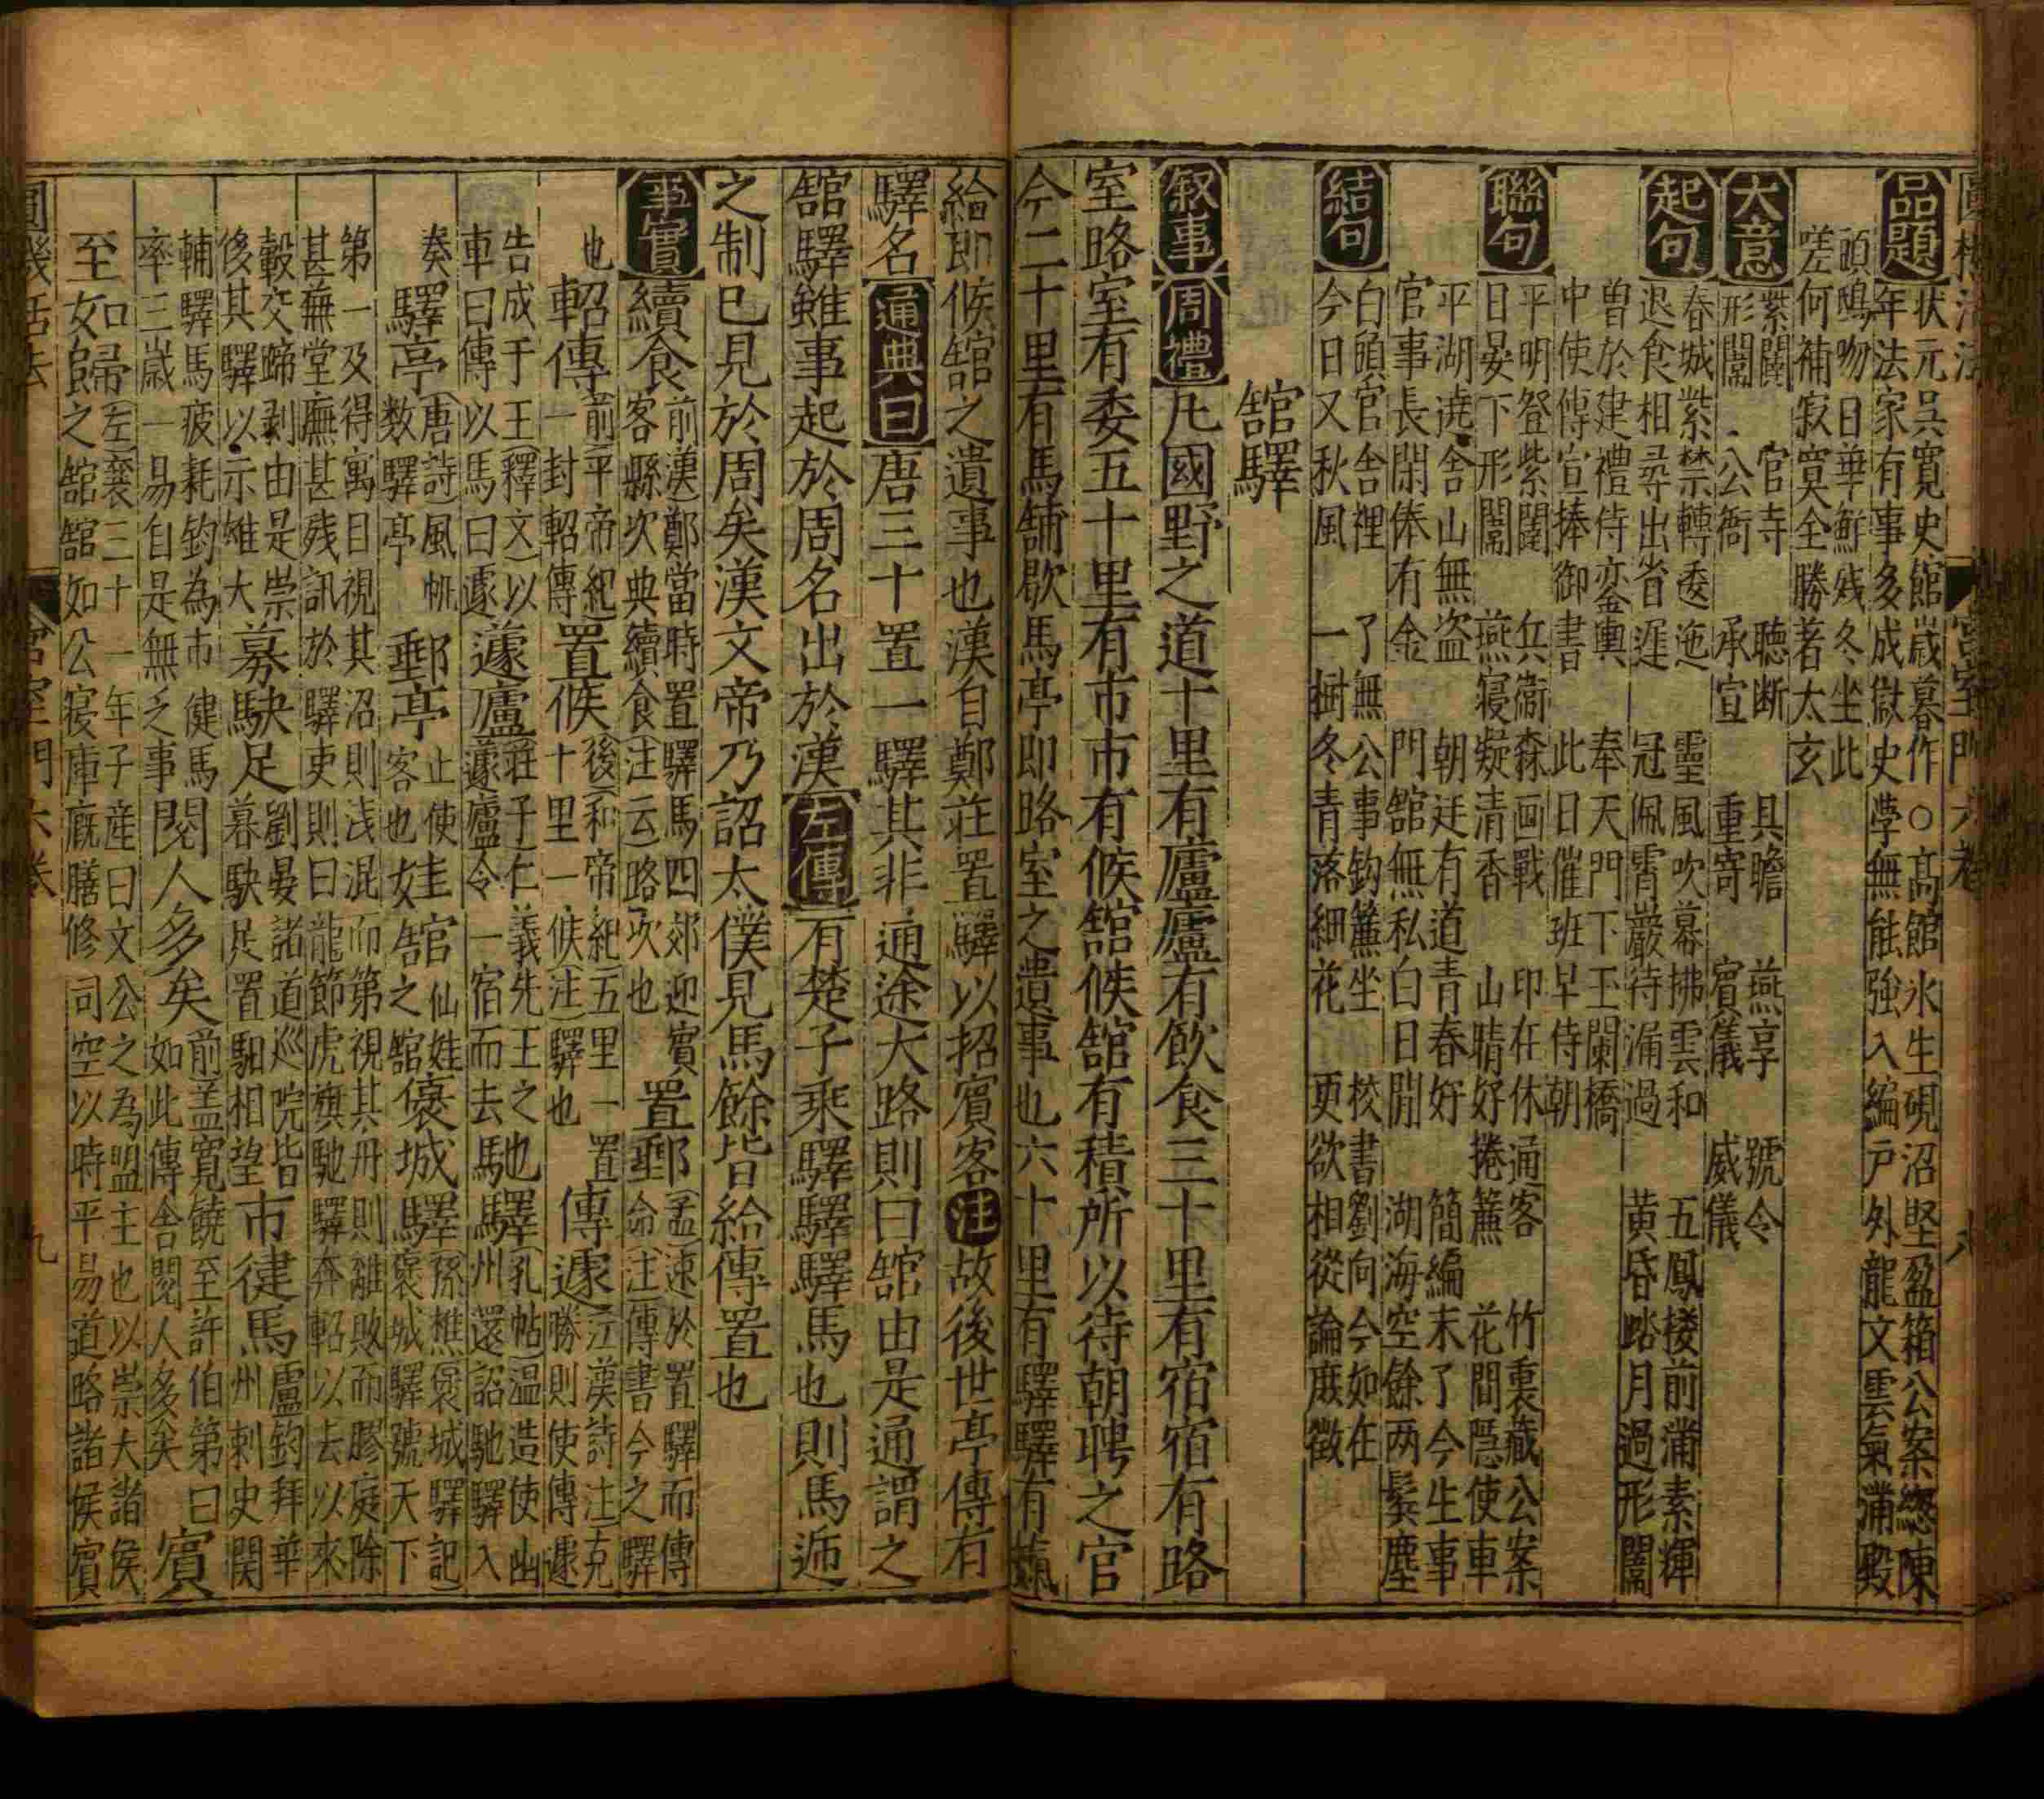 品題
狀元吳寬史館歲暮作○高館氷生硯沼堅盈箱公案緫陳
年法家有事多成獄史學無能強入編戸外龍文雲氣滿殿
頭鴟吻日華鮮殘冬坐此
嗟何補寂寞全勝著太玄
大意
紫闥　官寺　聽断　具瞻　燕享　號令
形闈　公衙　承宣　重寄　賓儀　威儀
起句
春城紫禁轉委迤　靈風吹幕拂雲和　五鳳楼前滿素輝
退食相尋出省遅　冠佩霄嚴待漏過　黄昏踏月過形闈
曽於建禮侍鑾輿　奉天門下玉闌橋
中使傳宣捧御書　此日催班早侍朝
聯句
平明登紫闥　兵衞森画戰　印在休通客　竹裏藏公案
日晏下形闈　燕寝凝清香　山晴好捲簾　花間隠使車
平湖遶舎山無盗　朝廷有道青春好　簡編末了今生事
官事長閑俸有金　門舘無私白日閒　湖海空餘两鬂塵
結句
白頭官舎裡　了無公事鈎簾坐　校書劉向今如在
今日又秋風　一樹冬青落細花　更欲相從論庶徵
舘驛
叙事 周禮 凡國野之道十里有廬廬有飲食三十里有宿宿有路
室路室有委五十里有市市有候舘候舘有積所以待朝聘之官
今二十里有馬舖歇馬亭即路室之遺事也六十里有驛驛有
給即候舘之遺事也漢自鄭莊置驛以招賓客注故後世亭傳有
驛名 通典曰 唐三十置一驛其非通途大路則曰舘由是通謂之
舘驛雖事起於周名出於漢 左傳 有楚子乘驛驛驛馬也則馬逓
之制已見於周矣漢文帝乃詔太僕見馬餘皆給傳置也
事實
續食 前漢鄭當時置驛馬四郊迎賓
客縣次典續食注云路次也
置郵 孟速於置驛而傳
命注傳書今之驛
也
軺傳 前平帝紀
一封軺傳
置候 後和帝紀五里一置
十里一候注驛也
傳遽 江漢詩注克
勝則使傳遽
告成于王釋文以
車曰傳以馬曰遽
蘧廬 莊子仁義先王之
蘧廬令一宿而去
馳驛 孔帖温造使幽
州還詔馳驛入
奏
驛亭 唐詩風帆
数驛亭
郵亭 止使
客也
娃舘 舘娃
褒城驛 孫樵褒城驛記
褒城驛號天下
第一及得寓目視其沼則浅混而第視其舟則離敗而膠庭除
甚蕪堂廡甚殘訊於驛吏則曰龍節虎旗馳驛奔軺以去以來
轂交蹄剥由是崇
後其驛以示雄大
募駛足 劉晏諸道巡院皆
暮駛足置驲相望
市徤馬 盧鈞拜華
州刺史関
輔驛馬疲耗鈞為市徤馬
率三歲一易自是無乏事
閱人多矣 前盖寛饒至許伯第曰
如此傳舎閱人多矣
賓
至如歸 左襄三十一年子産曰文公之為盟主也以崇大諸侯
之舘舘如公寝庫廐膳修司空以時平易道路諸侯賓